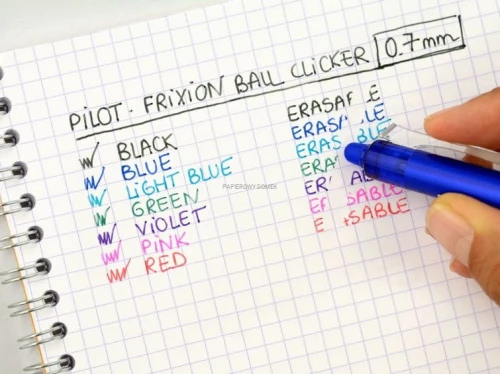 PILOT - FRIXION BALL CLICKER 0.7mm
BLACK
BLUE
LIGHT BLUE
GREEN
VIOLET
PINK
RED
ERASA E
ERAS LE
ERAS BLE
ERA
ER A
E SABLE
E SABLE
PAPIEROWYDOMEK